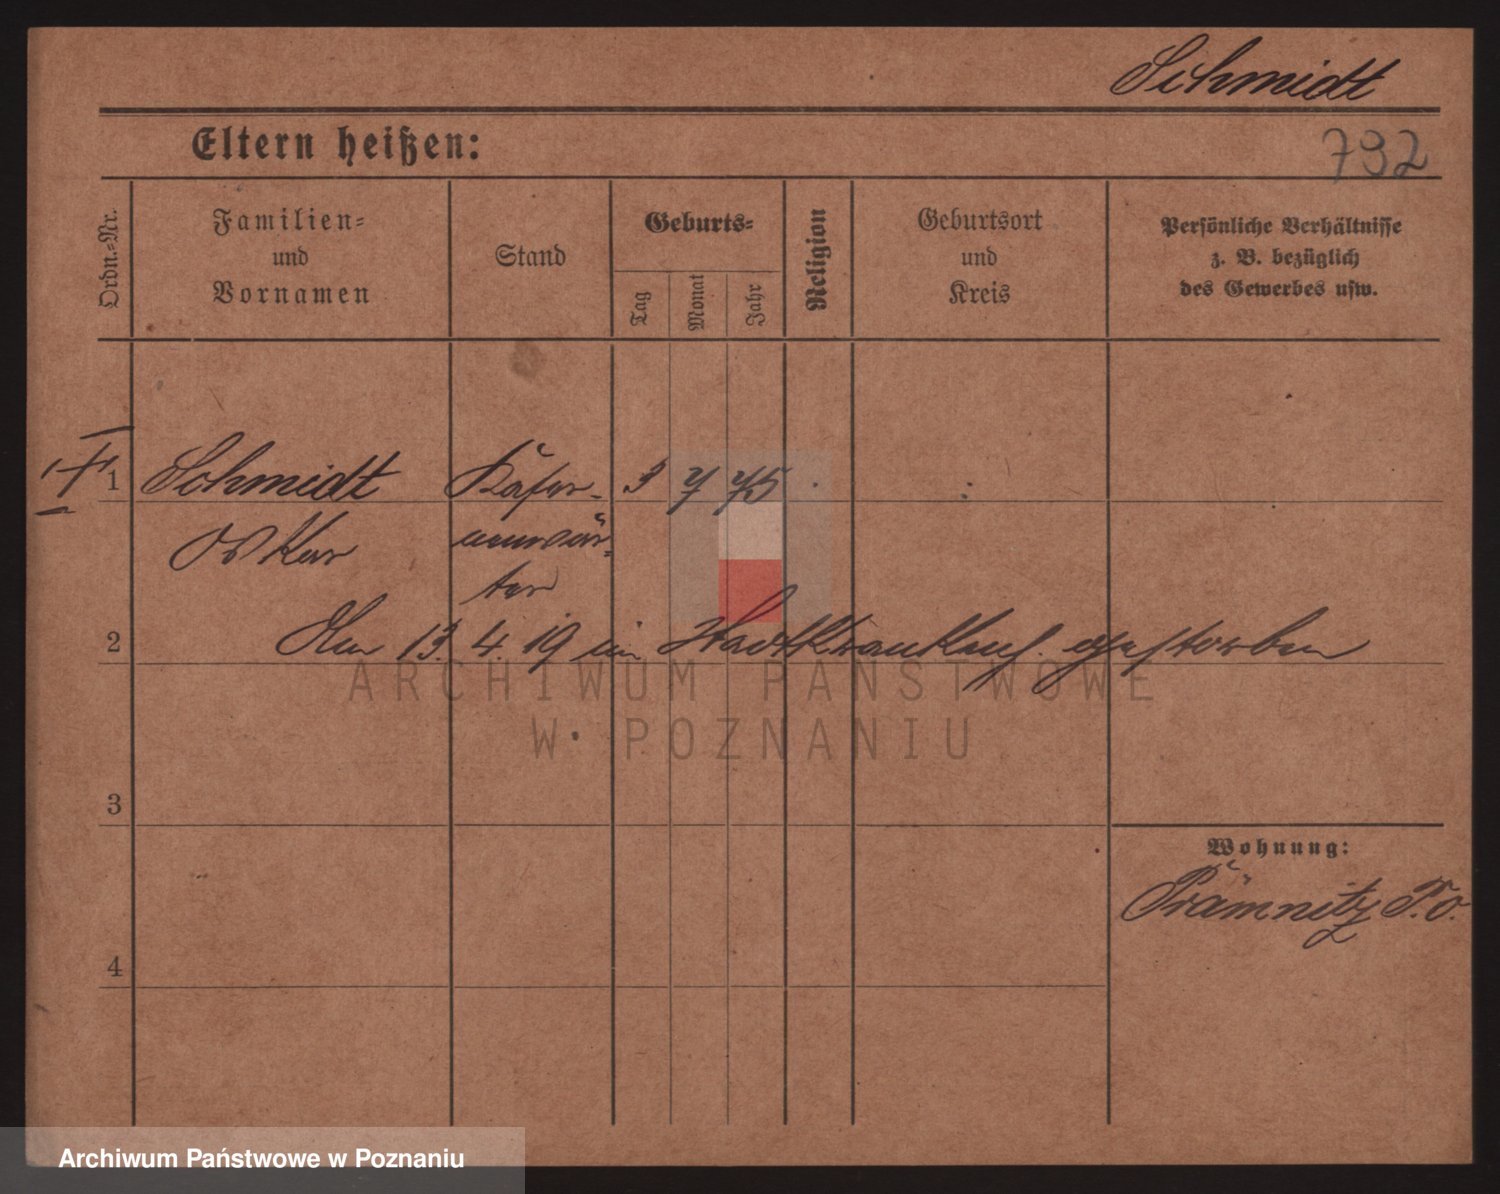 Schmidt
Eltern heißen:
792
Ordn.-Nr.
Familien-
und
Vornamen
Stand
Geburts-
Tag
Monat
Jahr
Religion
Geburtsort
und
Kreis
Persönliche Verhältnisse
z. B. bezüglich
des Gewerbes usw.
1 Schmidt 3 7 75
Oskar anwär-
ter
2 Am 13. 4. 19 im Stadtkrankenh. gestorben
ARCHIWUM PAŃSTWOWE
W POZNANIU
3
Wohnung:
Prämnitz P.O.
4
Archiwum Państwowe w Poznaniu